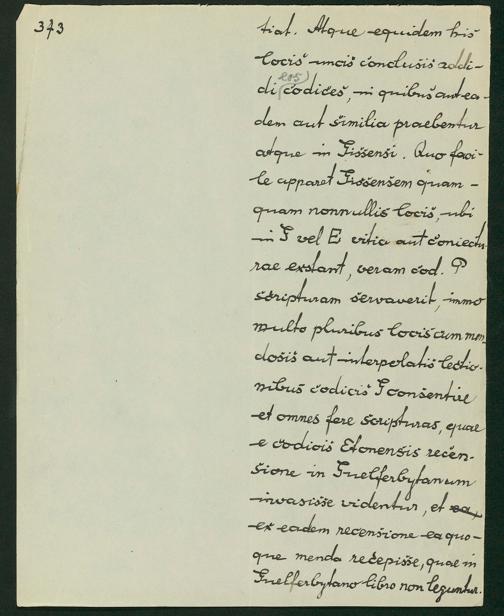 373
tiat. Atque equidem his
locis uncis conclusis addi-
di (eos) codices, in quibus aut ea-
dem aut similia praebentur
atque in Gissensi. Quo faci-
le apparet Gissensem quam-
quam nonnullis locis, ubi
in G vel E vitia aut coniectu-
rae exstant, veram cod. P
scripturam servaverit, immo
multo pluribus locis cum men-
dosis aut interpolatis lectio-
nibus codicis G consentire
et omnes fere scripturas, quae
e codicis Etonensis recen-
sione in Guelferbytanum
invasisse videntur, et ea
ex eadem recensione ea quo-
que menda recepisse, quae in
Guelferbytano libro non leguntur.